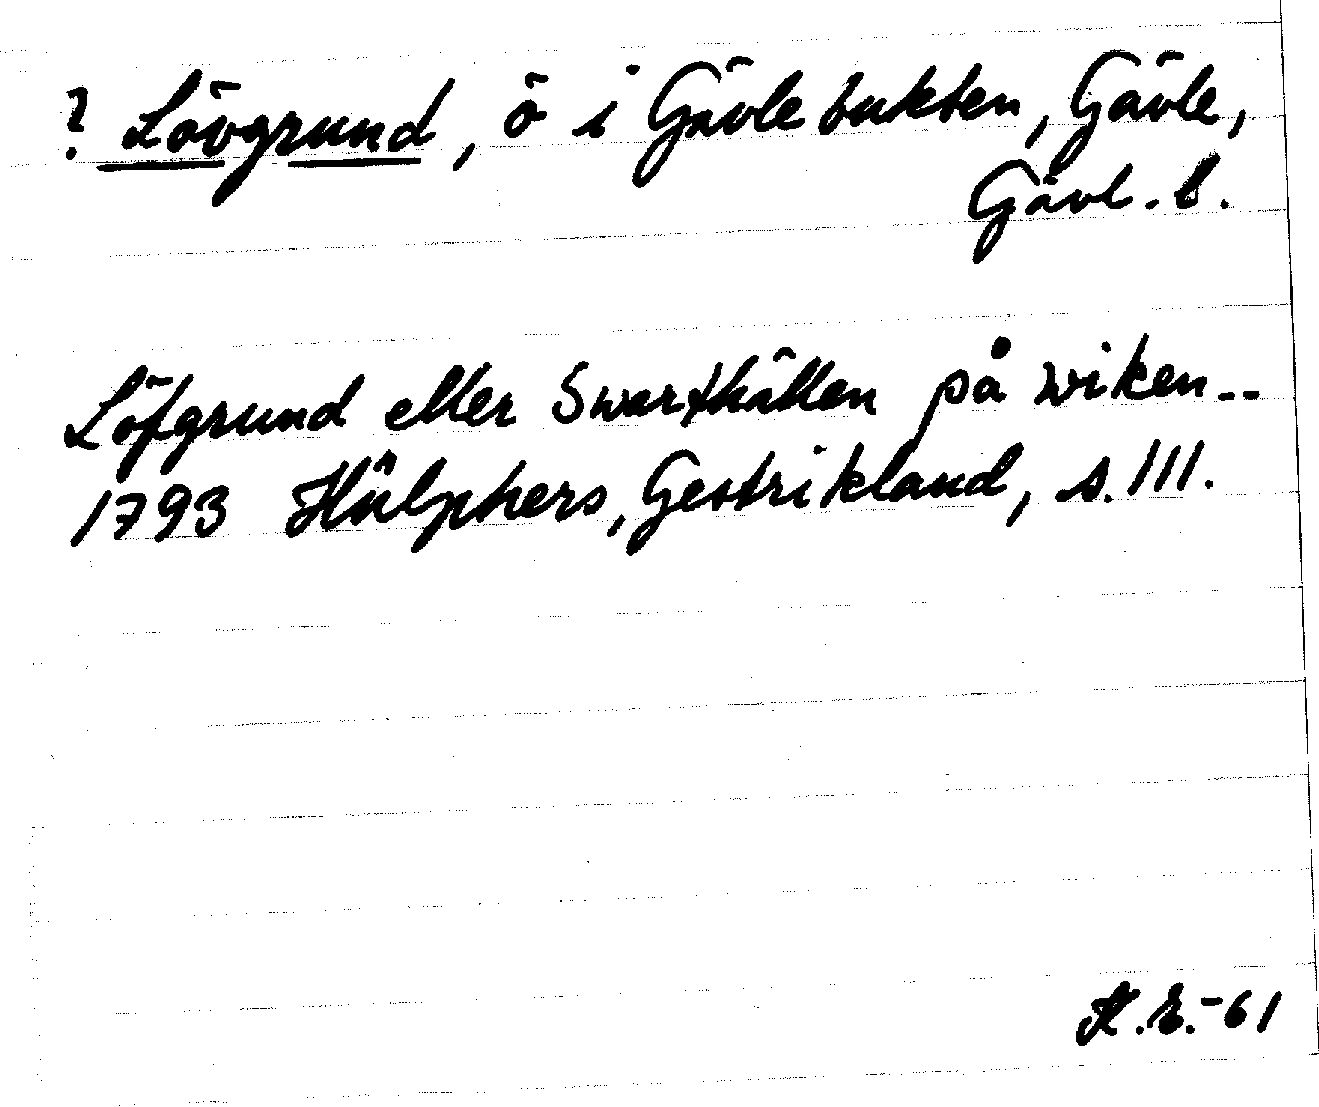 ? Lövgrund, ö i Gävlebukten, Gävle,
Gävl. l.
Löfgrund eller Swarthällen på wiken --
1793 Hülphers, Gestrikland, s. 111.
K.E.-61